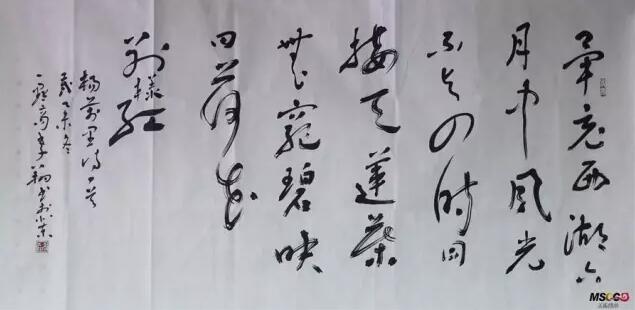 畢竟西湖六
月中風光
不与四時同
接天蓮葉
無窮碧映
日荷花
別樣紅
楊萬里詩一首
乙未冬